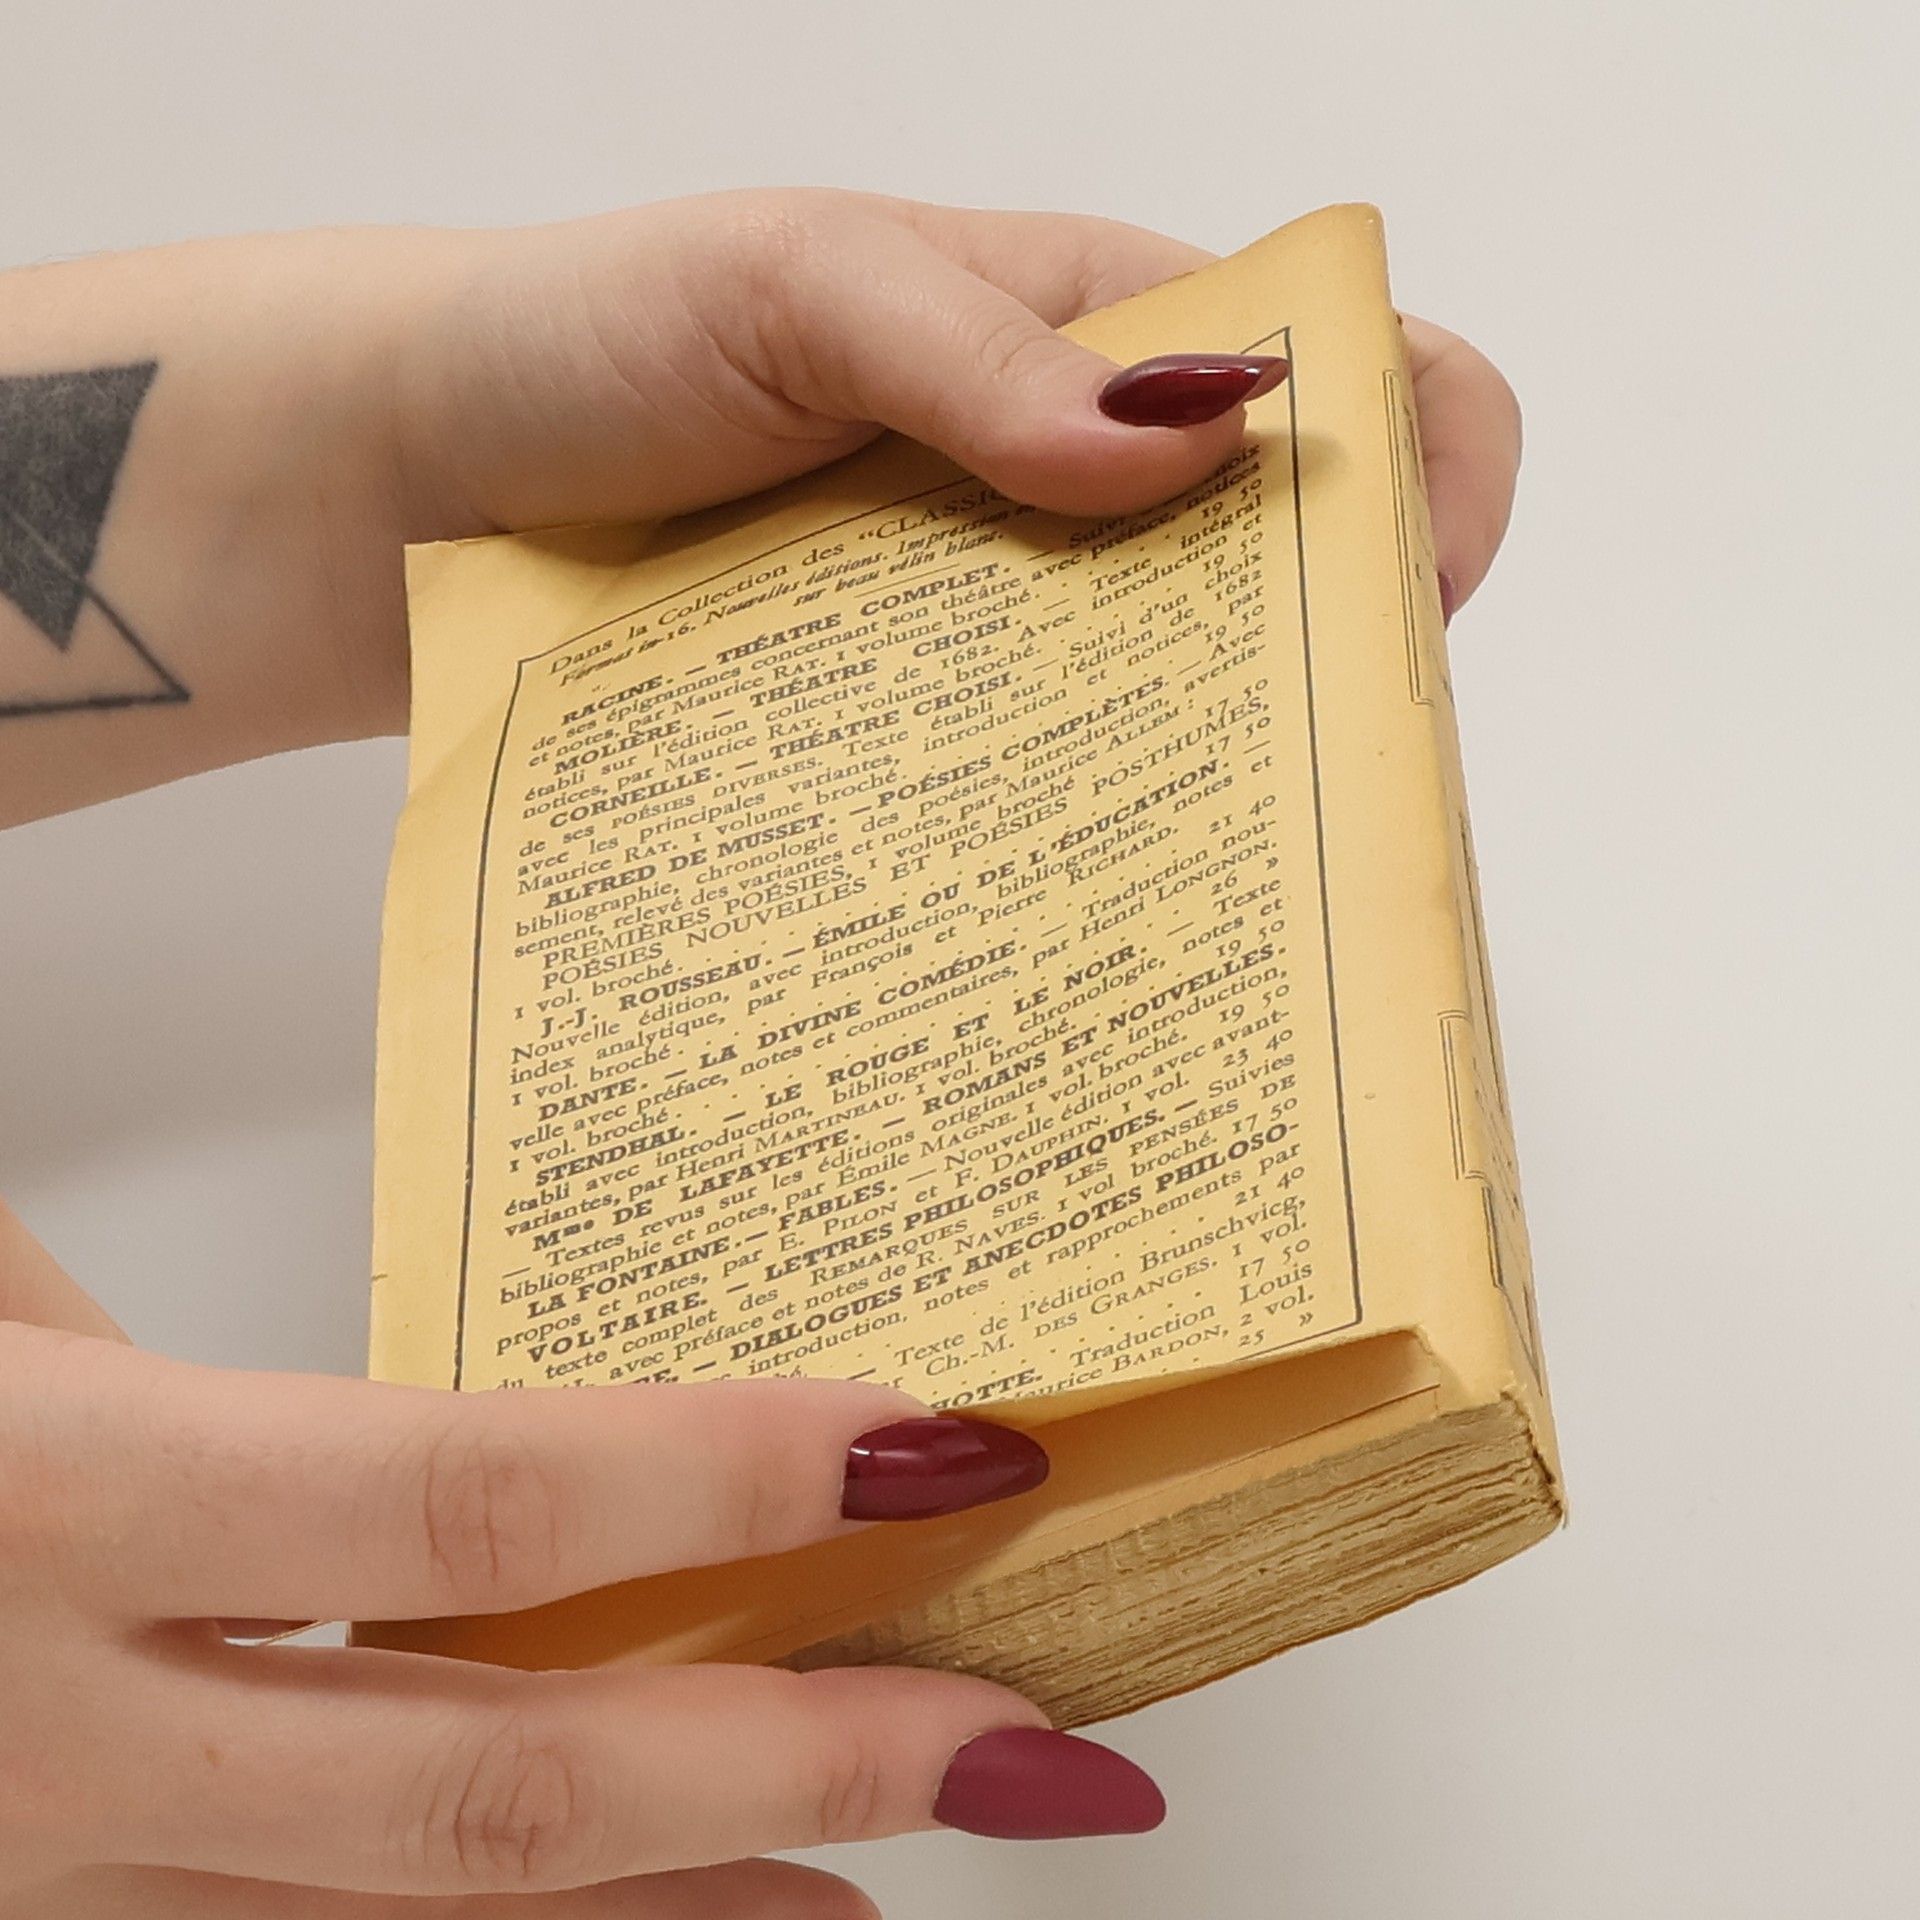 Dans la Collection des "CLASSIC
Format in-16. Nouvelles éditions. Impression
sur beau vélin blanc.
RACINE. — THÉATRE COMPLET. — Suivi noix
de ses épigrammes concernant son théâtre avec préface, notices
et notes, par Maurice RAT. 1 volume broché. . . . 19 50
MOLIÈRE. — THÉATRE CHOISI. — Texte intégral
établi sur l'édition collective de 1682. Avec introduction et
notices, par Maurice RAT. 1 volume broché. . . . 19 50
CORNEILLE. — THÉATRE CHOISI. — Suivi d'un choix
de ses POÉSIES DIVERSES. Texte établi sur l'édition de 1682
avec les principales variantes, introduction et notices, par
Maurice RAT. 1 volume broché. . . . . 19 50
ALFRED DE MUSSET. — POÉSIES COMPLÈTES. — Avec
bibliographie, chronologie des poésies, introduction, avertis-
sement, relevé des variantes et notes, par Maurice ALLEM :
PREMIÈRES POÉSIES, 1 volume broché 17 50
POÉSIES NOUVELLES ET POÉSIES POSTHUMES,
1 vol. broché. . . . . . 17 50
J.-J. ROUSSEAU. — ÉMILE OU DE L'ÉDUCATION. —
Nouvelle édition, avec introduction, bibliographie, notes et
index analytique, par François et Pierre RICHARD.
1 vol. broché. . . . . . 21 40
DANTE. — LA DIVINE COMÉDIE. — Traduction nou-
velle avec préface, notes et commentaires, par Henri LONGNON.
1 vol. broché. . . . . . 26 »
STENDHAL. — LE ROUGE ET LE NOIR. — Texte
établi avec introduction, bibliographie, chronologie, notes et
variantes, par Henri MARTINEAU. 1 vol. broché. . . 19 50
Mme DE LAFAYETTE. — ROMANS ET NOUVELLES.
— Textes revus sur les éditions originales avec introduction,
bibliographie et notes, par Émile MAGNE. 1 vol. broché. 19 50
LA FONTAINE. — FABLES. — Nouvelle édition avec avant-
propos et notes, par E. PILON et F. DAUPHIN. 1 vol. 23 40
VOLTAIRE. — LETTRES PHILOSOPHIQUES. — Suivies
du texte complet des REMARQUES SUR LES PENSÉES DE
avec préface et notes de R. NAVES. 1 vol broché. 17 50
— DIALOGUES ET ANECDOTES PHILOSO-
introduction, notes et rapprochements par
. . . . . 21 40
— Texte de l'édition Brunschvicg,
Ch.-M. DES GRANGES. 1 vol.
. . . . 17 50
Traduction Louis
BARDON, 2 vol.
25 »